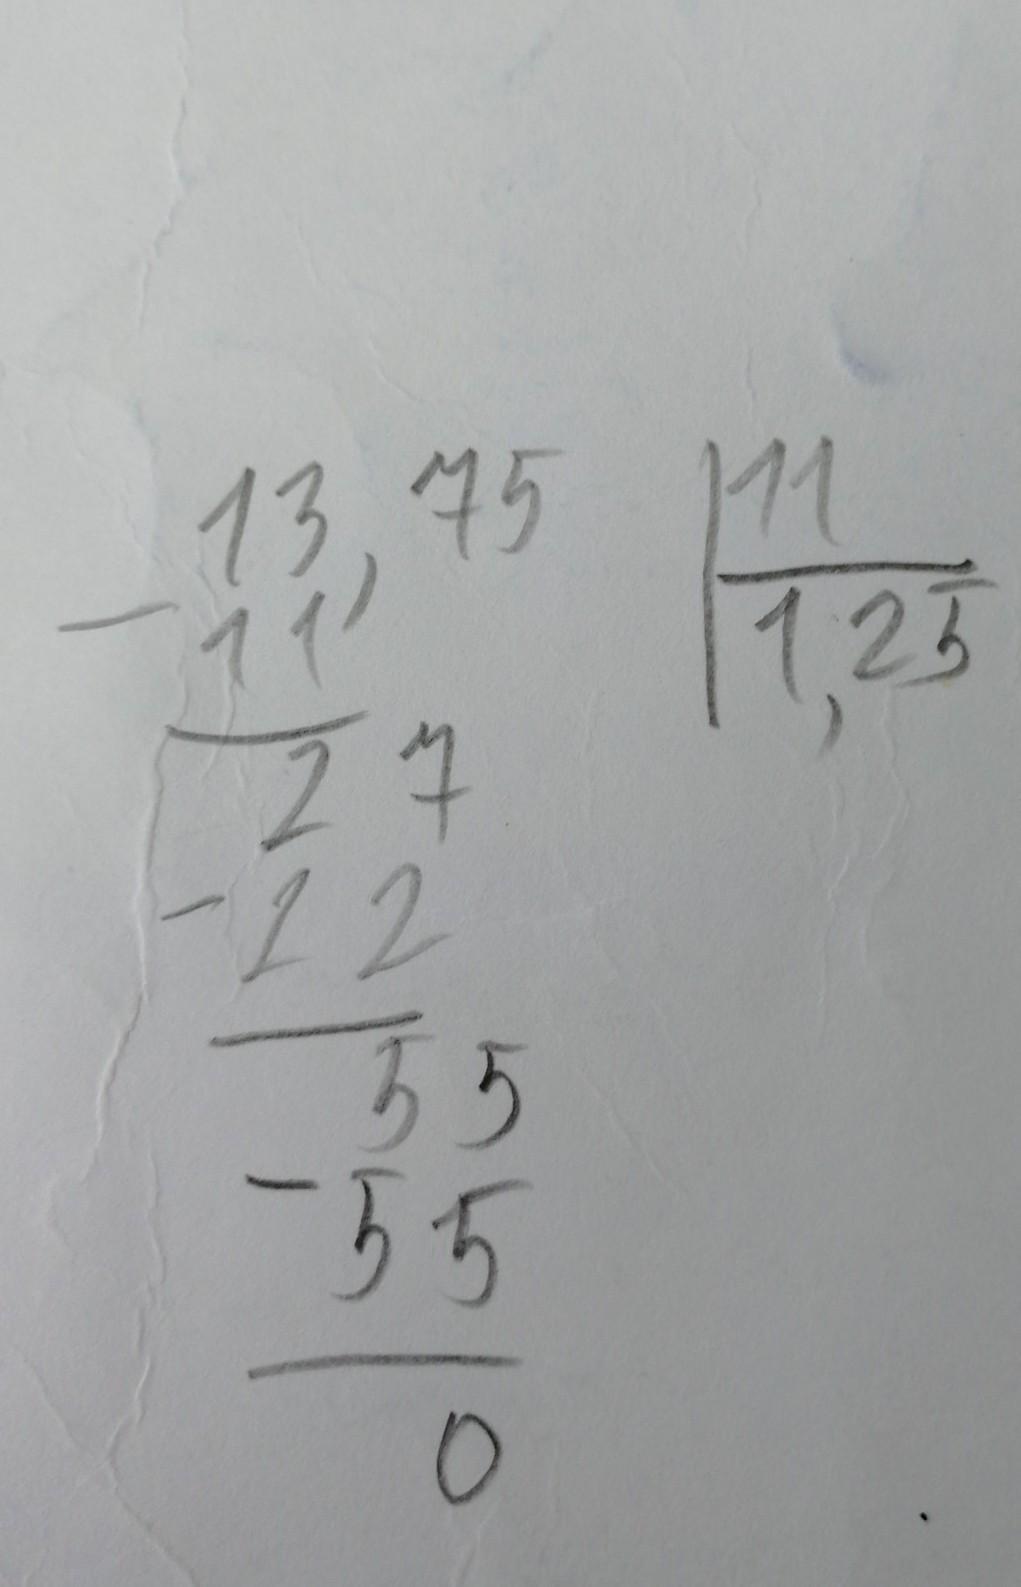 13,75 11
- 11 1,25
27
- 22
55
- 55
0